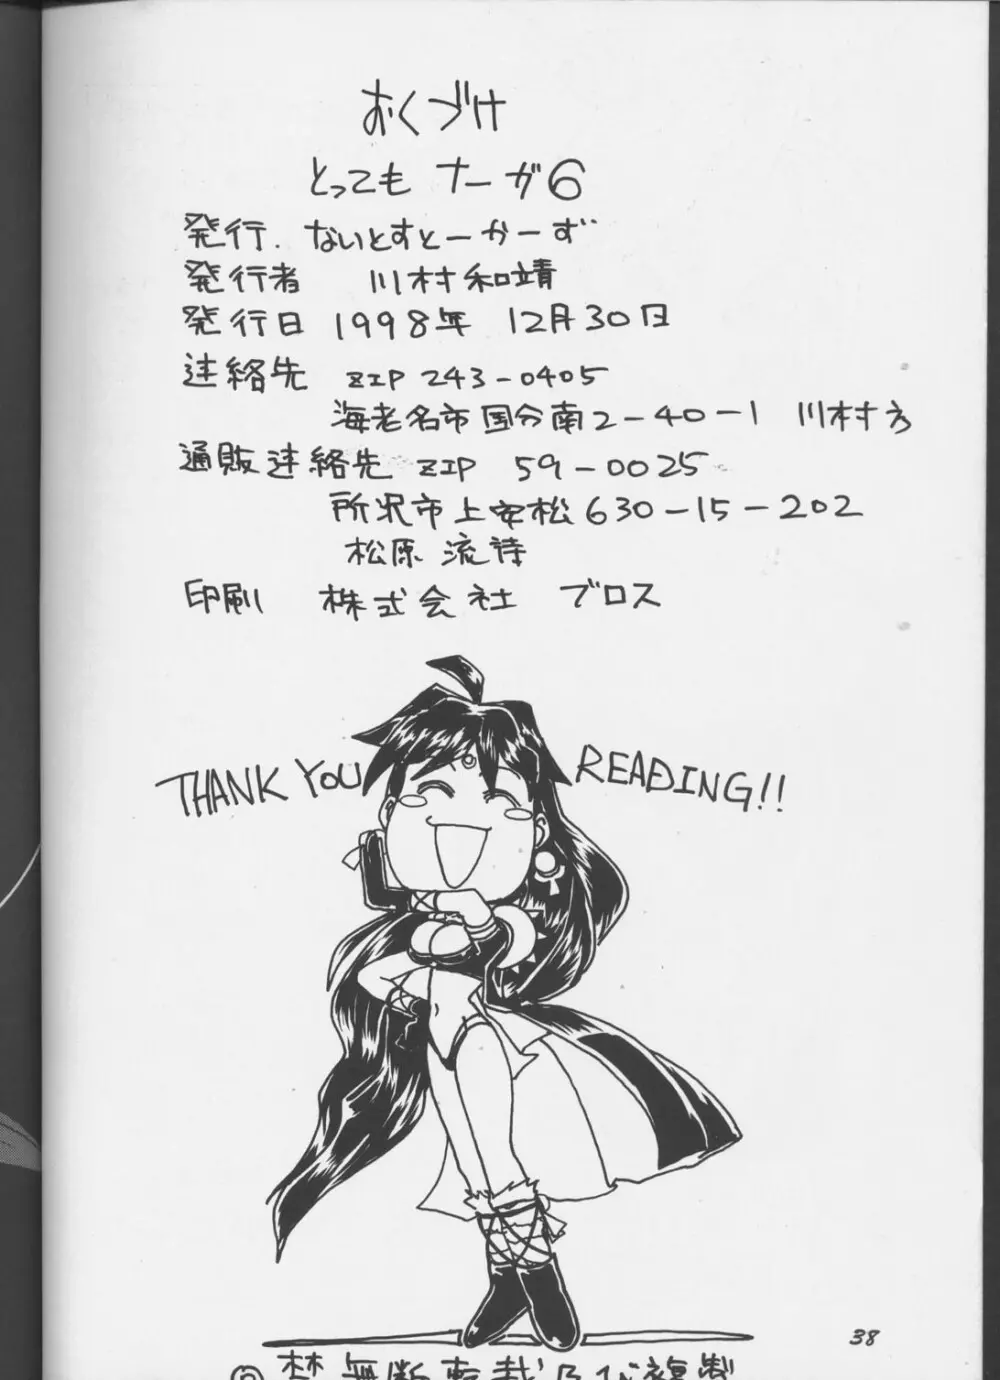 おくづけ
とっても ナーガ6
発行. ないとすとーかーず
発行者 川村和靖
発行日 1998年 12月30日
連絡先 ZIP 243-0405
海老名市国分南2-40-1 川村方
通販連絡先 ZIP 59-0025
所沢市上安松630-15-202
松原 流詩
印刷 株式会社 ブロス
THANK YOU READING!!
38
禁無断転載及び複製